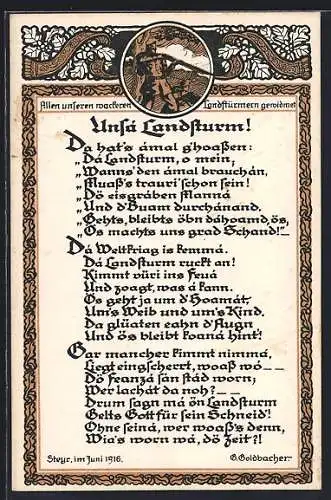 Allen unseren wackeren Landstürmern gewidmet
Unsá Landsturm!
Da hat's ámal g'hoaßen:
„Dá Landsturm, o mein,
„Wanns' den ámal brauchán,
„Muaß's trauri' schon sein!
„Dö eisgráben Manná
„Und d'Buam durchánand,
„Gehts, bleibts öbn dáhoamd, ös,
„Os machts uns grad Schand!" –
Dá Weltkriag is kemmá.
Dá Landsturm ruckt an!
Kimmt vüri ins Feuá
Und zoagt, was á kann.
Os geht ja um d'Hoamát,
Um's Weib und um's Kind.
Da glüaten eahn d'Augn
Und ös bleibt koaná hint'!
Gar mancher kimmt nimmá,
Liegt eingscherrt, woaß wó – –
Dö Feanzá sán stád worn;
Wer lachát da noh? – –
Drum sagn má ön Landsturm
Gelts Gott für sein Schneid!
Ohne seiná, wer woaß's denn,
Wia's worn wá, dö Zeit?!
Steyr, im Juni 1916.
G. Goldbacher.